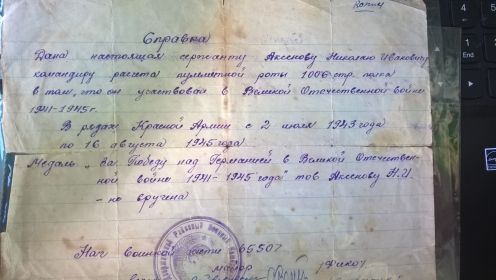 Копия
Справка
Дана настоящая сержанту Аксенову Николаю Ивановичу
командиру расчета пулеметной роты 1006 стр. полка
в том, что он участвовал в Великой Отечественной войне
1941-1945г.
В рядах Красной Армии с 2 июля 1943 года
по 16 августа 1945 года
Медаль „За Победу над Германией в Великой Отечествен-
ной войне 1941-1945 года" тов Аксенову Н.И.
- не вручена
Нач воинской части 65507
майор
End